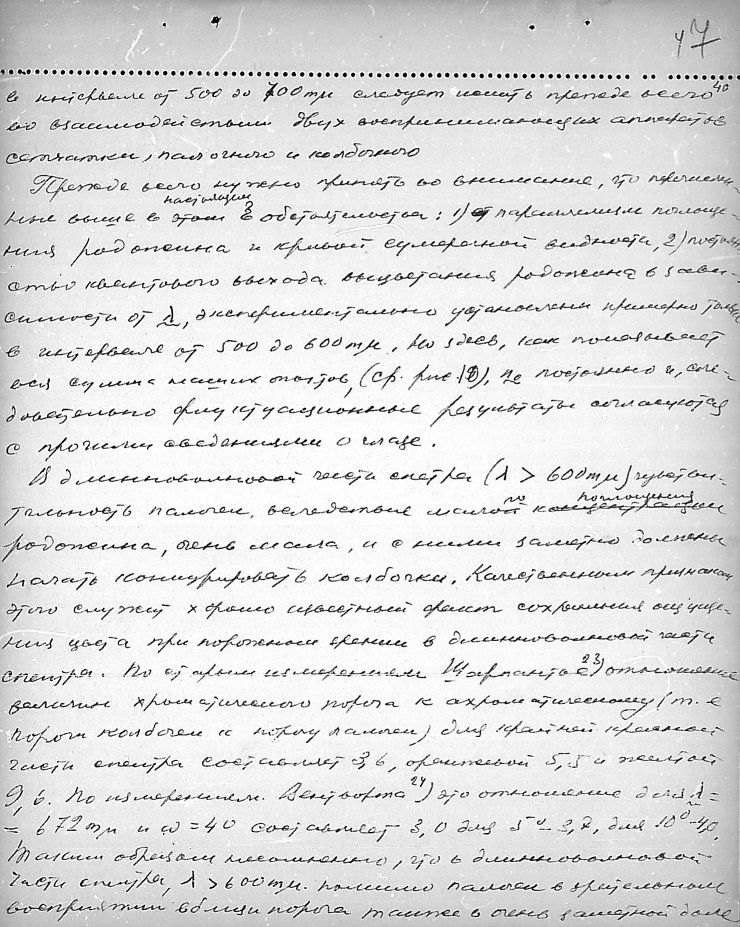 47
в интервале от 500 до 700 mμ следует искать прежде всего 40
во взаимодействии двух воспринимающих аппаратов
сетчатки, палочного и колбочного
Прежде всего нужно принять во внимание, что перечислен-
настоящем
ные выше в этом § обстоятельства: 1) параллелизм поглоще-
ния родопсина и кривой сумеречной видности, 2) постоян
ство квантового выхода выцветания родопсина в зави-
симости от λ, экспериментально установлены примерно только
в интервале от 500 до 600 mμ. Но здесь, как показывает
вся сумма наших опытов, (ср. рис. 18), n₀ постоянно и, сле-
довательно флуктуационные результаты согласуются
с прочими сведениями о глазе.
В длинноволновой части спектра (λ > 600 mμ) чувстви-
поглощения
тельность палочек, вследствие малого концентрации
родопсина, очень мала, и с ними заметно должны
начать конкурировать колбочки. Качественным признаком
этого служит хорошо известный факт сохранения ощуще-
ния цвета при пороговом зрении в длинноволновой части
спектра. По старым измерениям Шарпантье 23) отношение
величин хроматического порога к ахроматическому (т.е
порога колбочек к порогу палочек) для крайней красной
части спектра составляет 3,6, оранжевой 5,5 и желтой
9,6. По измерениям Вентворта 24) это отношение для λ =
= 672 mμ и ω = 40 составляет 3,0 для 5° – 3,7, для 10° – 4,0.
Таким образом несомненно, что в длинноволновой
части спектра, λ > 600 mμ. помимо палочек в зрительном
восприятии вблизи порога также в очень заметной доле